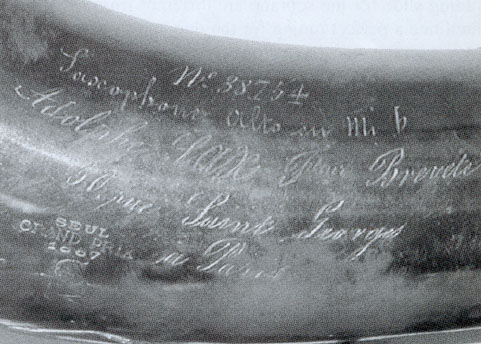 No 38754
Saxophone alto en mi b
Adolphe SAX Breveté
50 rue Saint Georges
à Paris
SEUL
GRAND PRIX
1867